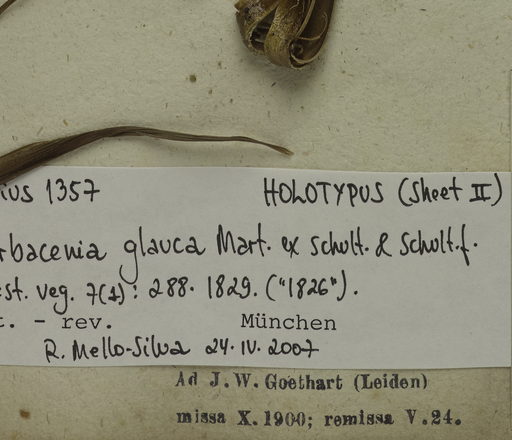 ius 1357 HOLOTYPUS (Sheet II)
rbacenia glauca Mart. ex Schult. & Schult.f.
st. veg. 7(1): 288. 1829. ("1826").
t. - rev. München
R. Mello-Silva 24.IV.2007
Ad J. W. Goethart (Leiden)
missa X. 1900; remissa V. 24.